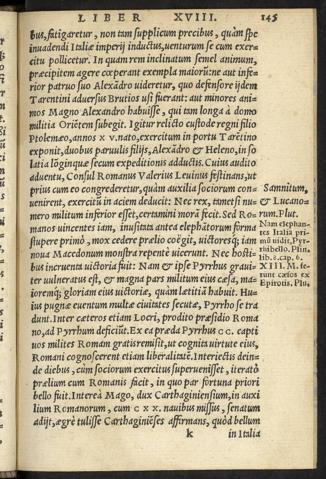 LIBER XVIII. 145
bus, fatigaretur, non tam supplicum precibus, quàm spe
inuadendi Italiæ imperij inductus, uenturum se cum exer-
citu pollicetur. In quam rem inclinatum semel animum,
præcipitem agere cœperant exempla maiorũ: ne aut infe-
rior patruo suo Alexãdro uideretur, quo defensore ijdem
Tarentini aduersus Brutios usi fuerant: aut minores ani-
mos Magno Alexandro habuisse, qui tam longa à domo
militia Oriẽtem subegit. Igitur relicto custode regni filio
Ptolemæo, annos x v. nato, exercitum in portu Tarẽtino
exponit, duobus paruulis filijs, Alexãdro & Heleno, in so
latia lõginquæ secum expeditionis adductis. Cuius audito
aduentu, Consul Romanus Valerius Leuinus festinans, ut
prius cum eo congrederetur, quàm auxilia sociorum con-
uenirent, exercitũ in aciem deducit: Nec rex, tametsi nu-
mero militum inferior esset, certamini morã fecit. Sed Ro-
manos uincentes iam, inusitata antea elephãtorum forma
stupere primò, mox cedere prælio coëgit, uictoresq; iam
noua Macedonum monstra repentè uicerunt. Nec hosti-
bus incruenta uictoria fuit: Nam & ipse Pyrrhus graui-
ter uulneratus est, & magna pars militum eius cæsa, ma-
ioremq; gloriam eius uictoriæ, quàm lætitiã habuit. Hu-
ius pugnæ euentum multæ ciuitates secutæ, Pyrrho se tra
dunt. Inter cæteros etiam Locri, prodito præsidio Roma
no, ad Pyrrhum deficiũt. Ex ea præda Pyrrhus CC. capti
uos milites Romam gratis remisit, ut cognita uirtute eius,
Romani cognoscerent etiam liberalitatẽ. Interiectis dein-
de diebus, cùm sociorum exercitus superuenisset, iteratò
prælium cum Romanis facit, in quo par fortuna priori
bello fuit. Intereà Mago, dux Carthaginiensium, in auxi
lium Romanorum, cum C X X. nauibus missus, senatum
adijt, ægrè tulisse Carthaginiẽses affirmans, quòd bellum
k in Italia
Samnitum,
& Lucano-
rum. Plut.
Nam elephan-
tes Italia pri-
mũ uidit, Pyr-
rhi bello. Plin.
lib. 8. cap. 6.
XIII. M. fe-
runt cæsos ex
Epirotis, Plu,